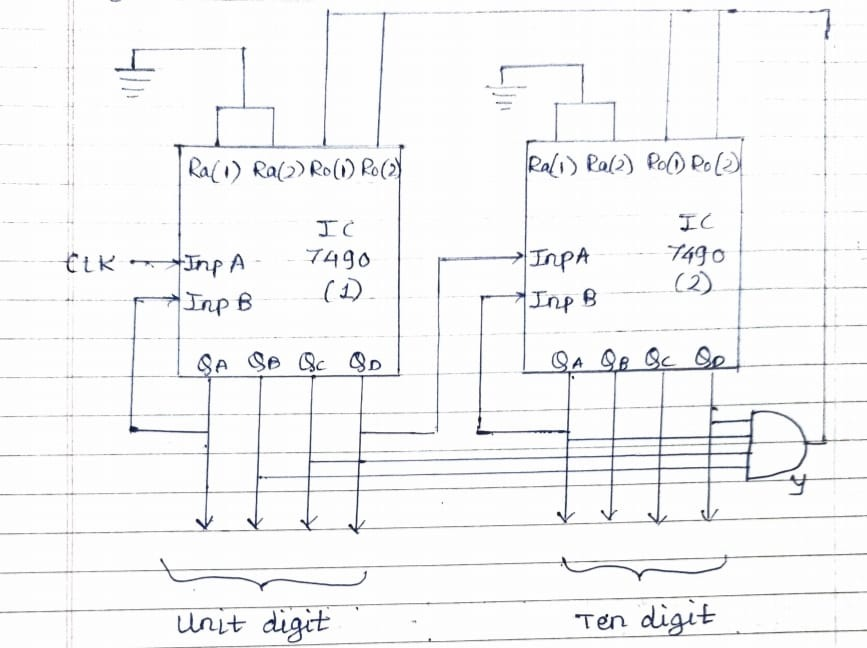 Ra(1) Ra(2) Ro(1) Ro(2)
IC
7490
(1)
CLK
Inp A
Inp B
QA QB QC QD
Ra(1) Ra(2) Ro(1) Ro(2)
IC
7490
(2)
Inp A
Inp B
QA QB QC QD
Y
Unit digit
Ten digit